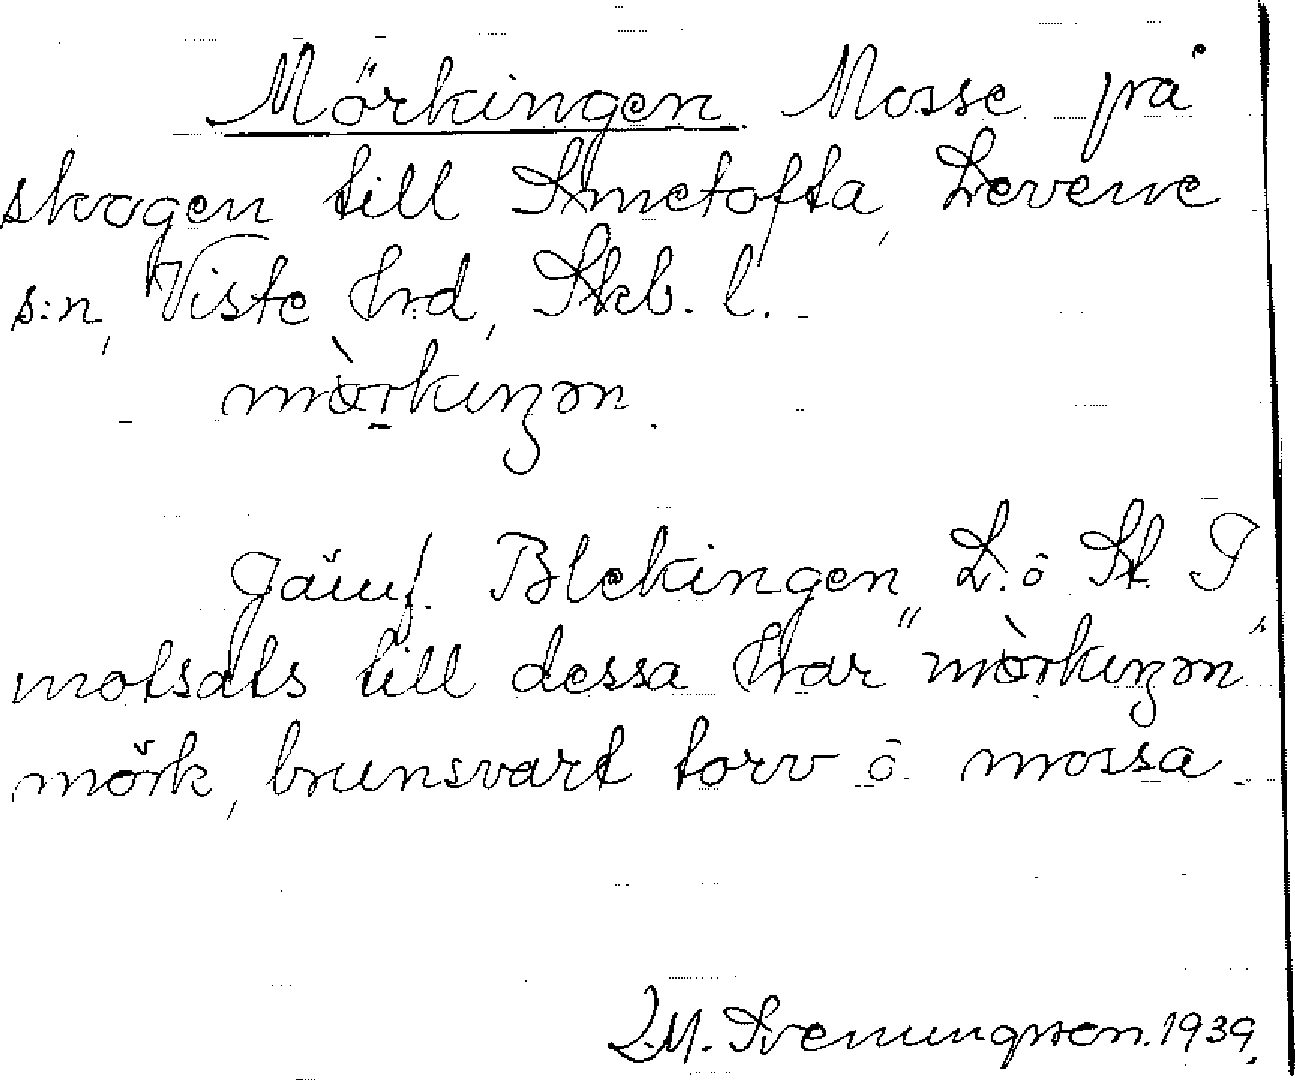 Mörkingen Mosse på
skogen till Smetofta, Levene
s:n, Viste hrd, Skb. l.
mòrkiŋən.
Jämf. Blekingen L. o St. I
motsats till dessa har "mòrkiŋən"
mörk, brunsvart torv o mossa.
L.M. Svenungsson. 1939.